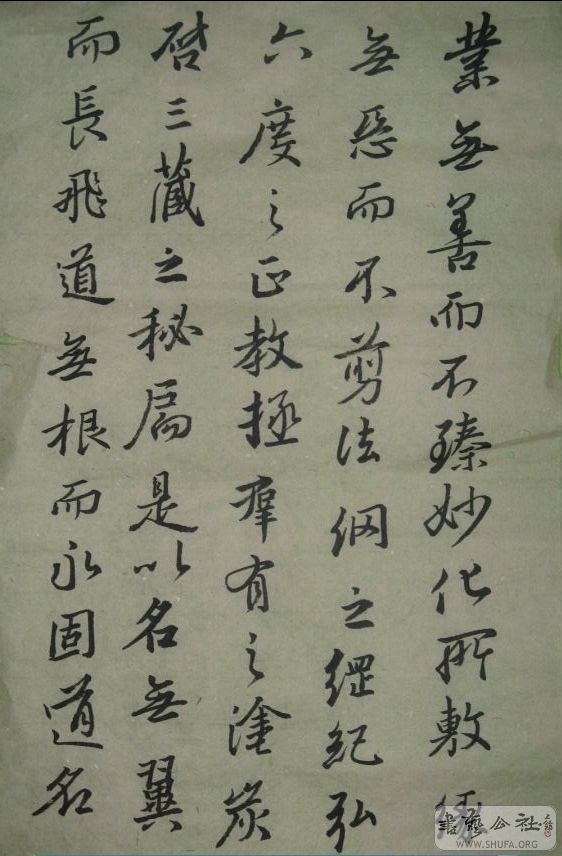 業無善而不臻妙化所敷緣
無惡而不剪法網之綱紀弘
六度之正教拯群有之塗炭
啓三藏之秘扃是以名無翼
而長飛道無根而永固道名
書藝公社
WWW.SHUFA.ORG